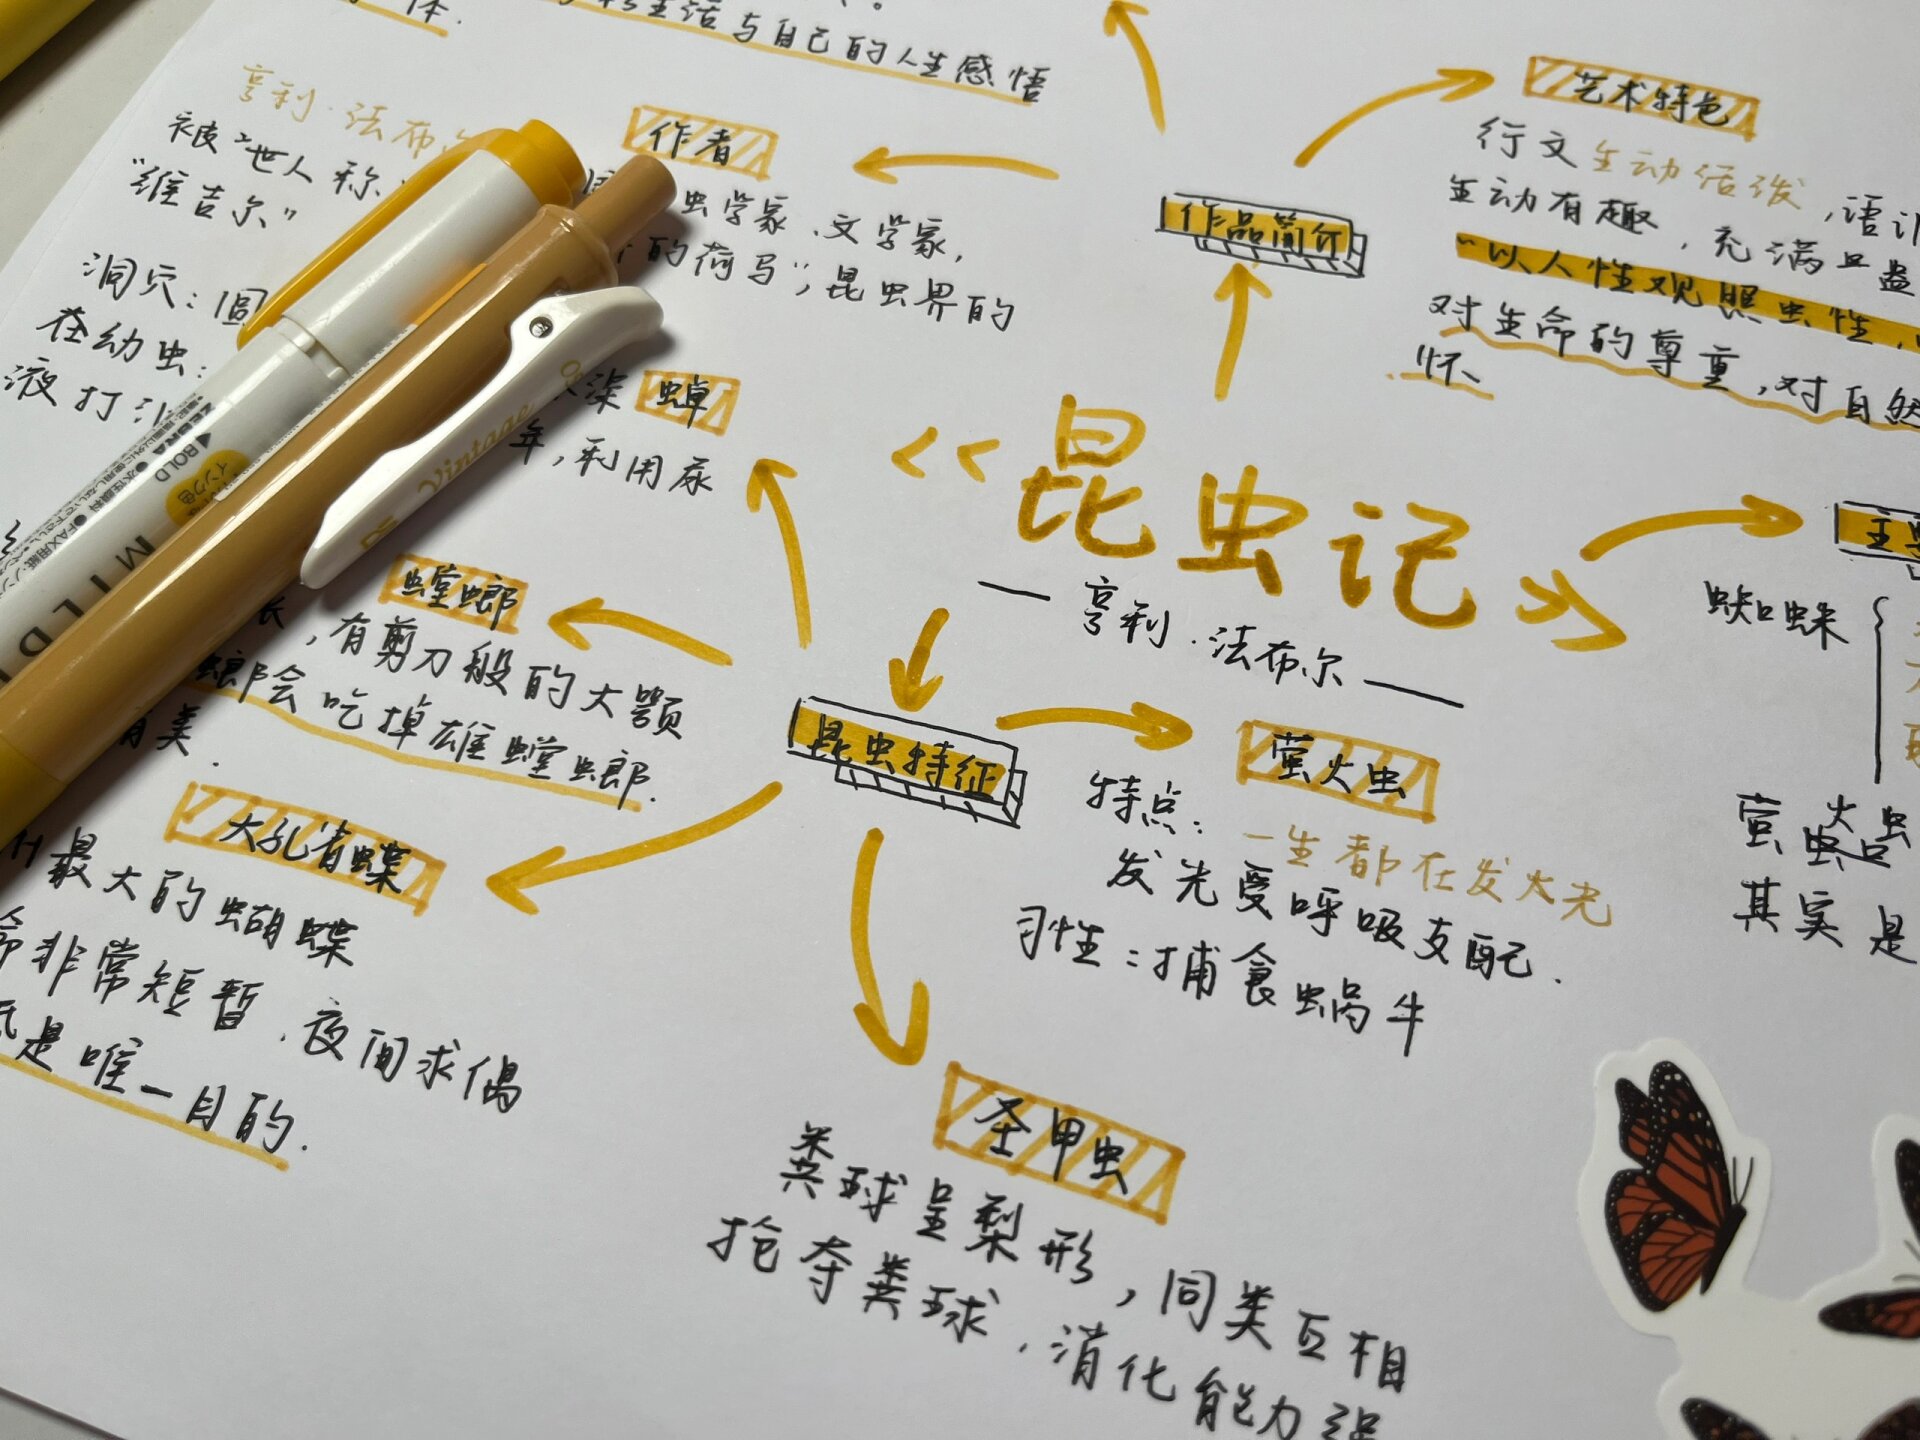 体.
生活与自己的人生感悟
亨利·法布
作者
被"世人称
虫学家、文学家,
"维吉尔"
的荷马",昆虫界的
洞穴:圆
在幼虫:
深 蝉
液打
年,利用尿
作品简介
艺术特色
行文生动活泼,语
生动有趣,充满
"以人性观照虫性,
对生命的尊重,对自然
怀、
《昆虫记》
— 亨利·法布尔 —
昆虫特征
螳螂
长,有剪刀般的大颚
螂会吃掉雄螳螂.
有类.
大孔雀蝶
最大的蝴蝶
命非常短暂.夜间求偶
是唯一目的.
萤火虫
特点:一生都在发火光
发光受呼吸支配.
习性:捕食蜗牛
圣甲虫
粪球呈梨形,同类互相
抢夺粪球.消化能力强
主要
蜘蛛
萤火虫
其实是
ZEBRA
BOLD
インク色
MILD
Vintage